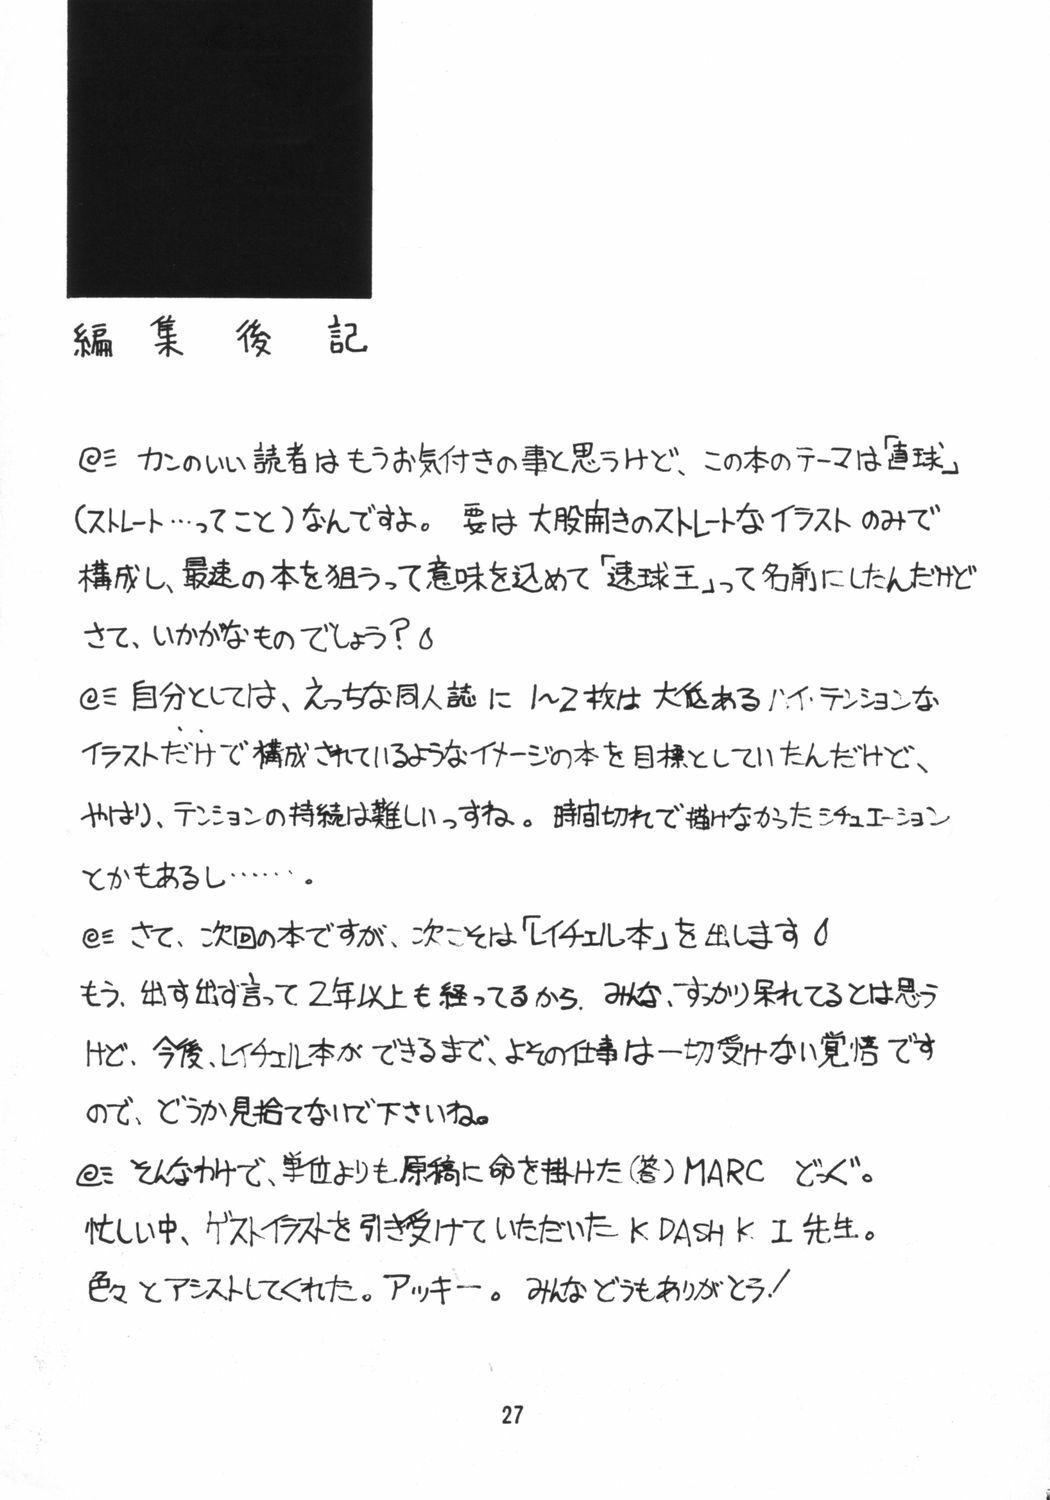 編集後記
カンのいい読者はもうお気付きの事と思うけど、この本のテーマは「直球」
(ストレート…ってこと)なんですよ。 要は大股開きのストレートなイラストのみで
構成し、最速の本を狙うって意味を込めて「速球王」って名前にしたんだけど
さて、いかがなものでしょう?
自分としては、えっちな同人誌に1~2枚は大低あるハイ・テンションな
イラストだけで構成されているようなイメージの本を目標としていたんだけど、
やはり、テンションの持続は難しいっすね。時間切れで描けなかったシチュエーション
とかもあるし……。
さて、次回の本ですが、次こそは「レイチェル本」を出します
もう、出す出す言って2年以上も経ってるから、みんな、すっかり呆れてるとは思う
けど、今後、レイチェル本ができるまで、よその仕事は一切受けない覚悟です
ので、どうか見捨てないで下さいね。
そんなわけで、単位よりも原稿に命を掛けた(答)MARC どっぐ。
忙しい中、ゲストイラストを引き受けていただいたK DASH K I 先生。
色々とアシストしてくれた。アッキー。みんなどうもありがとう!
27